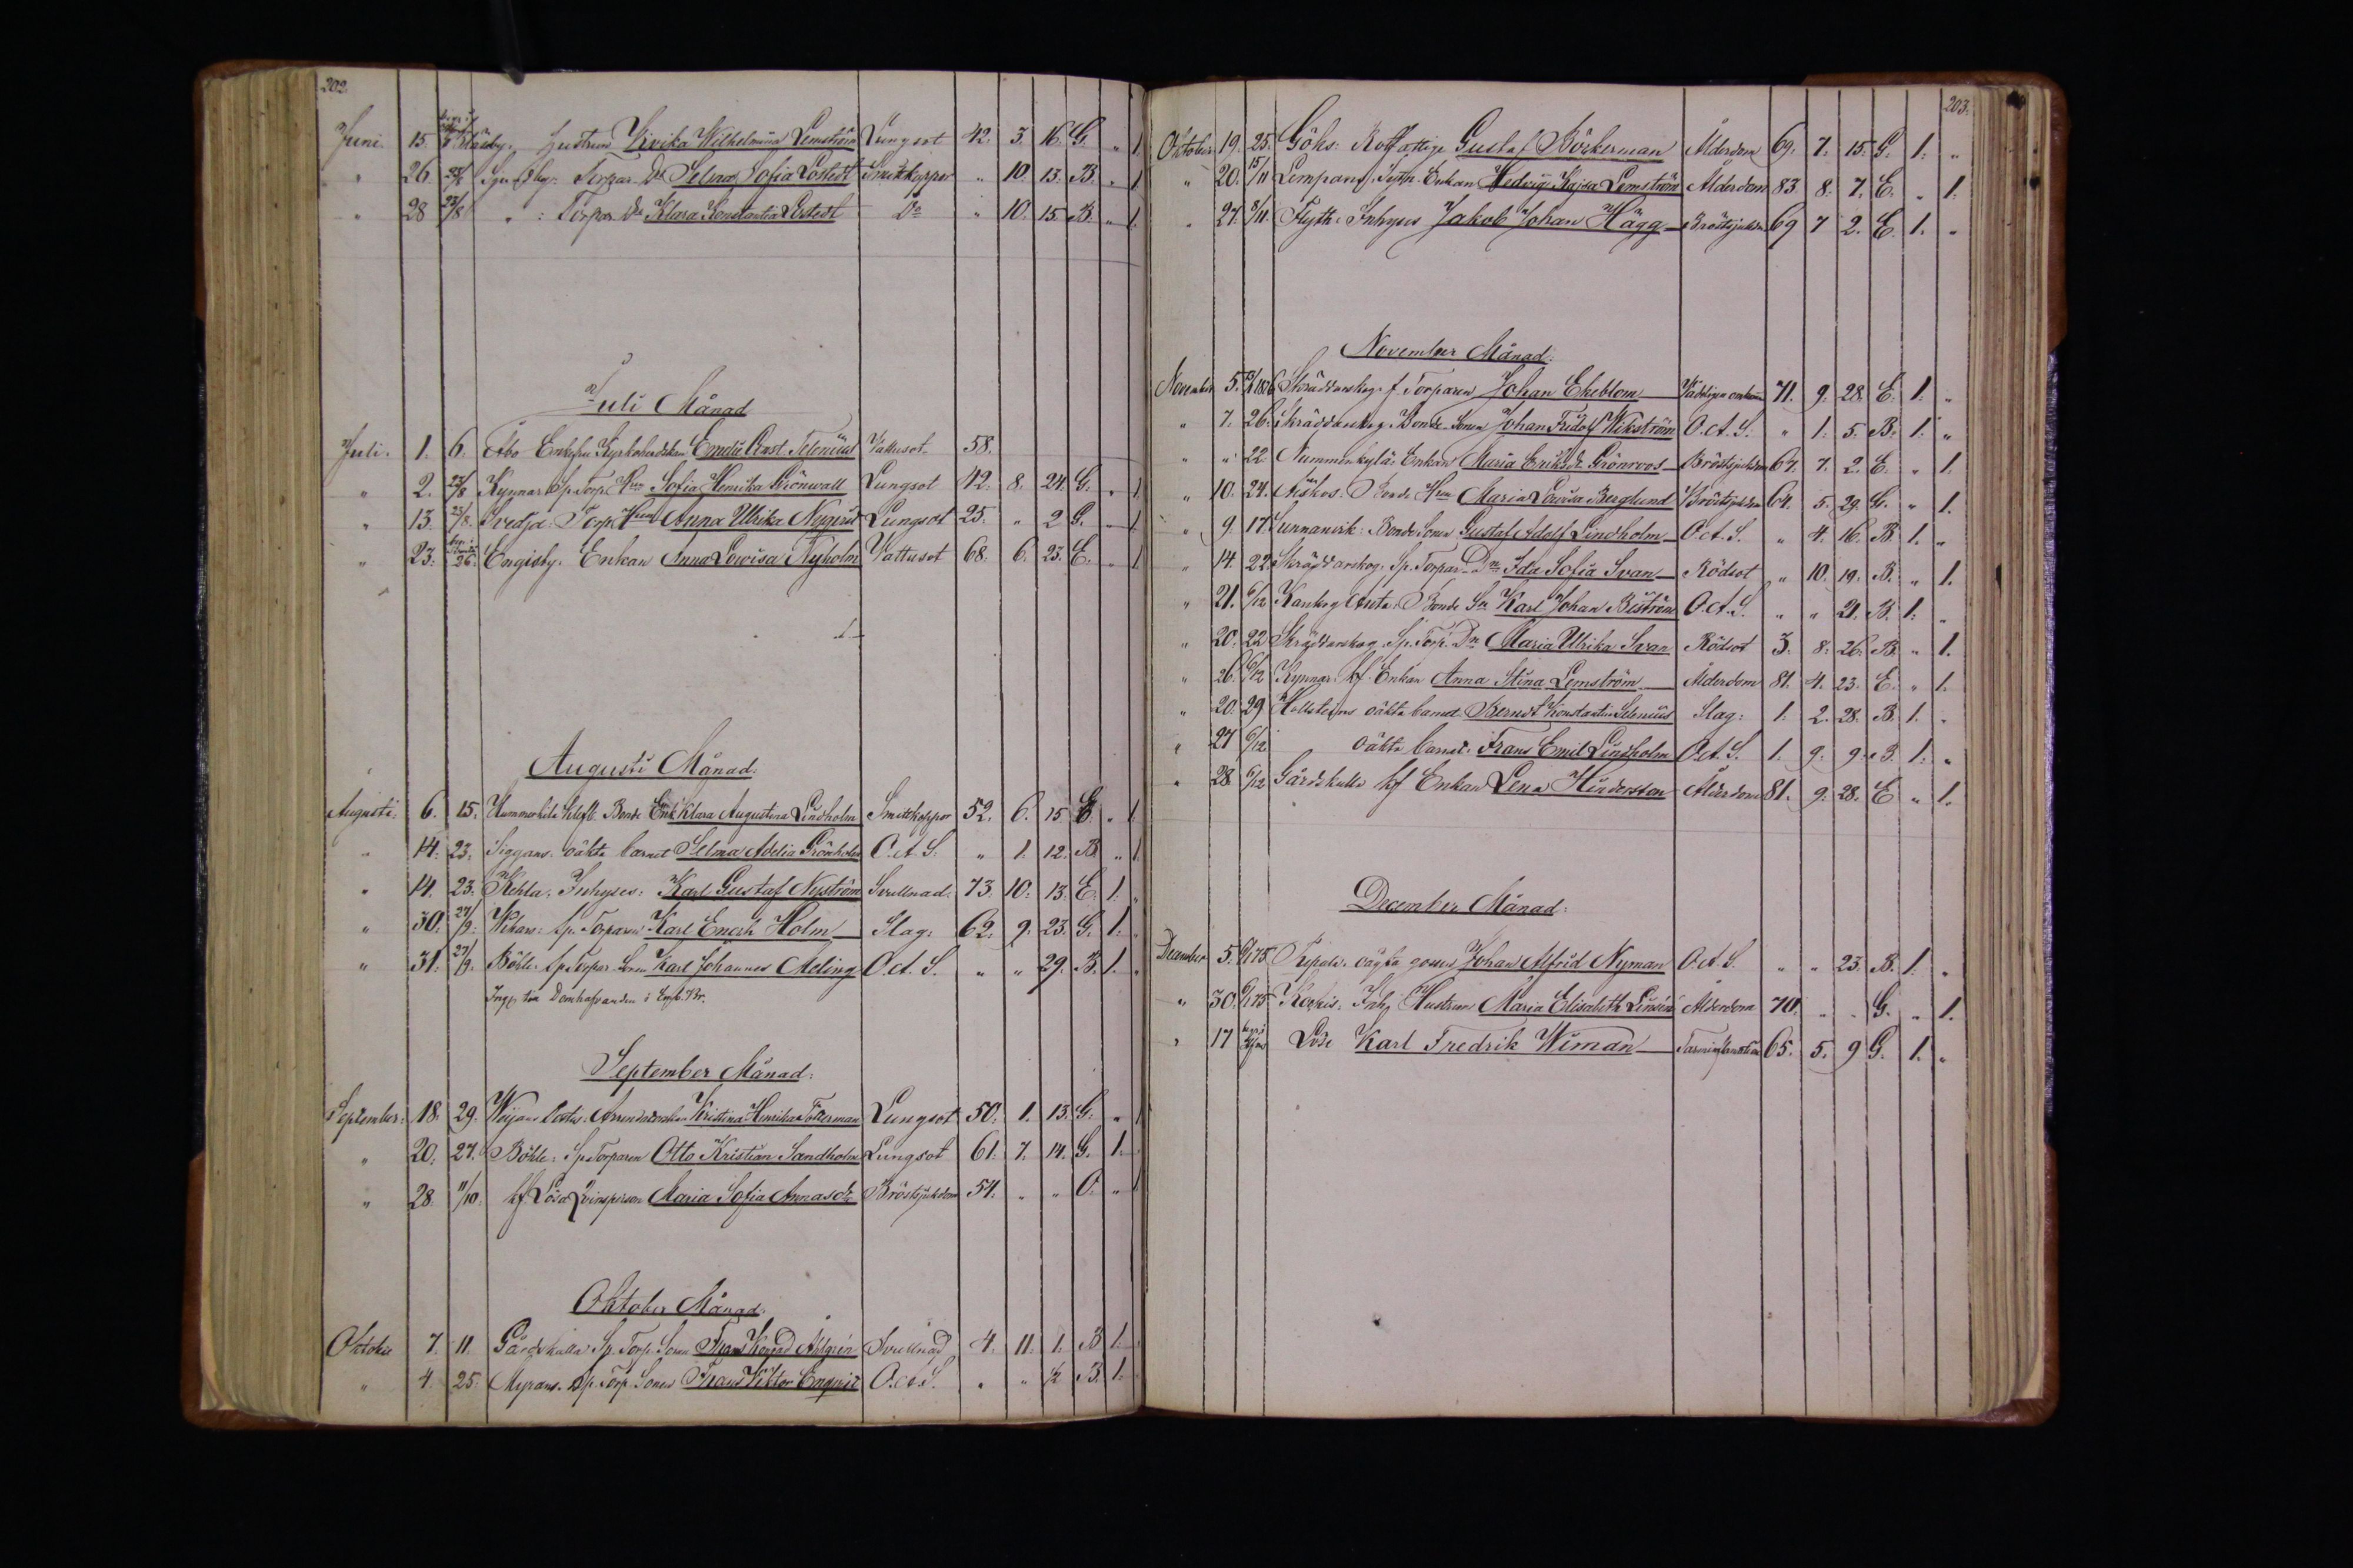 202.
Juni. 15. Hustrun Vivika Wilhelmina Lemström Lungsot 42. 3. 16. G. „ 1.
„ 26. 23/8 Torpar Dr Selma Sofia Löstedt Smittkoppor „ 10. 13. B. „ 1.
„ 28 23/8 „ : Torpar Dr Klara Konstantia Löstedt Do „ 10. 15. B. „ 1.
Juli Månad
Juli. 1. 6. Åbo Enkefru Kyrkoherdskan Emelie Selenius Vattusot. 58.
„ 2. 23/8 Kynnar Sp. Torp. Hru Sofia Henrika Grönwall Lungsot 42. 8. 24. G. „ 1.
„ 13. 23/8. Svedja. Torp. Hru Anna Ulrika Nygrén Lungsot 25. „ 2 G. „ 1.
„ 23. 26. Engisby. Enkan Anna Lowisa Nyholm Vattusot 68. 6. 23. E. „ 1.
Augusti Månad.
Augusti. 6. 15. Bonde Enk Klara Augustina Lindholm Smittkoppor 52. 6. 15 E. „ 1.
„ 14. 23. Siggans. oäkta barnet Selma Adelia Grönholm O.A.S. „ 1. 12. B. „ 1.
„ 14. 23. Rehla. Inhyses: Karl Gustaf Nyström Svullnad. 73. 10. 13. E. 1. „
„ 30. 27/9. Wikans: Sp. Torparen Karl Enock Holm Slag. 62. 9. 23. G. 1. „
„ 31. 27/9. Böhle. Sp Torpar Sonen Karl Johannes Aeling O.A.S. „ „ 29. B. 1. „
September Månad:
September: 18. 29. Kristina Henrika Lungsot 50. 1. 13. G. „ 1
„ 20. 27. Böhle: Sp. Torparen Otto Kristian Sandholm Lungsot 61. 7. 14. G. 1.
„ 28. 11/10. hf. Lösa Qvinsperson Maria Sofia Annasdr Bröstsjukdom 54. „ „ O. „ 1
Oktober Månad.
Oktober 7. 11. Gårdskulla Sp. Torp. Sonen Frans Konrad Ahlgrén Svullnad 4. 11. 1. B. 1.
„ 4. 25. Myrans. Sp. Torp. Sonen Frans Viktor Enqvist O.A.S. „ „ ½ B. 1.
203.
Oktober 19. 25. Göhs: Rotfattige Gustaf Börkerman Ålderdom 69. 7. 15. G. 1. „
„ 20. 15/11 Lempans. Enkan Hedvig Kajsa Lemström Ålderdom 83. 8. 7. E. „ 1.
„ 27. 8/11 Flyth: Inhyses Jakob Johan Hägg Bröstsjukdm 69 7 2. E. 1. „
November Månad.
November 5. Skräddarskog. f. Torparen Johan Ekeblom 71. 9. 28. E. 1. „
„ 7. 26. Skräddarskog Bonde Sonen Johan Fridolf Wikström O.A.S. „ 1. 5. B. 1. „
„ „ 22 Nummenkylä: Enkan Maria Eriksdr Grönroos Bröstsjukdm 67. 7. 2. E. „ 1.
„ 10. 24. Bonde Hru Maria Lovisa Berglund Bröstsjukdm 64. 5. 29. G. „ 1.
„ 9. 17. Sunnanvik: Bonde Sonen Gustaf Adolf Lindholm O.A.S. „ 4. 16. B. 1. „
„ 14. 22. Skräddarskog. Sp. Torpar Dr Ida Sofia Svan Rödsot „ 10. 19. B. „ 1.
„ 21. 6/12 Bonde Sn Karl Johan Biström O.A.S. „ „ 21. B. 1. „
„ 20. 22 Skräddarskog. Sp. Torp. Dr Maria Ulrika Svan Rödsot 3. 8. 26. B. „ 1.
„ 26. 6/12 Kynnar. hf. Enkan Anna Stina Lemström Ålderdom 81. 4. 23. E. „ 1.
„ 20. 29 Hollsteins oäkta barnet Berndt Konstantin Selenius Slag. 1. 2. 28. B. 1. „
„ 27 6/12 oäkta barnet. Frans Emil Lindholm O.A.S. 1. 9. 9. B. 1. „
„ 28. 6/12 Gårdskulla hf Enkan Lena Hinderston Ålderdom 81. 9. 28. E „ 1.
December Månad.
December 5. oägta gossen Johan Alfrid Nyman O.A.S. „ „ 23. B. 1. „
„ 30. Hustrun Maria Elisabeth Ålderdom 70. „ „ G. „ 1.
„ 17 Löse Karl Fredrik Wiman 65. 5. 9 G. 1. „